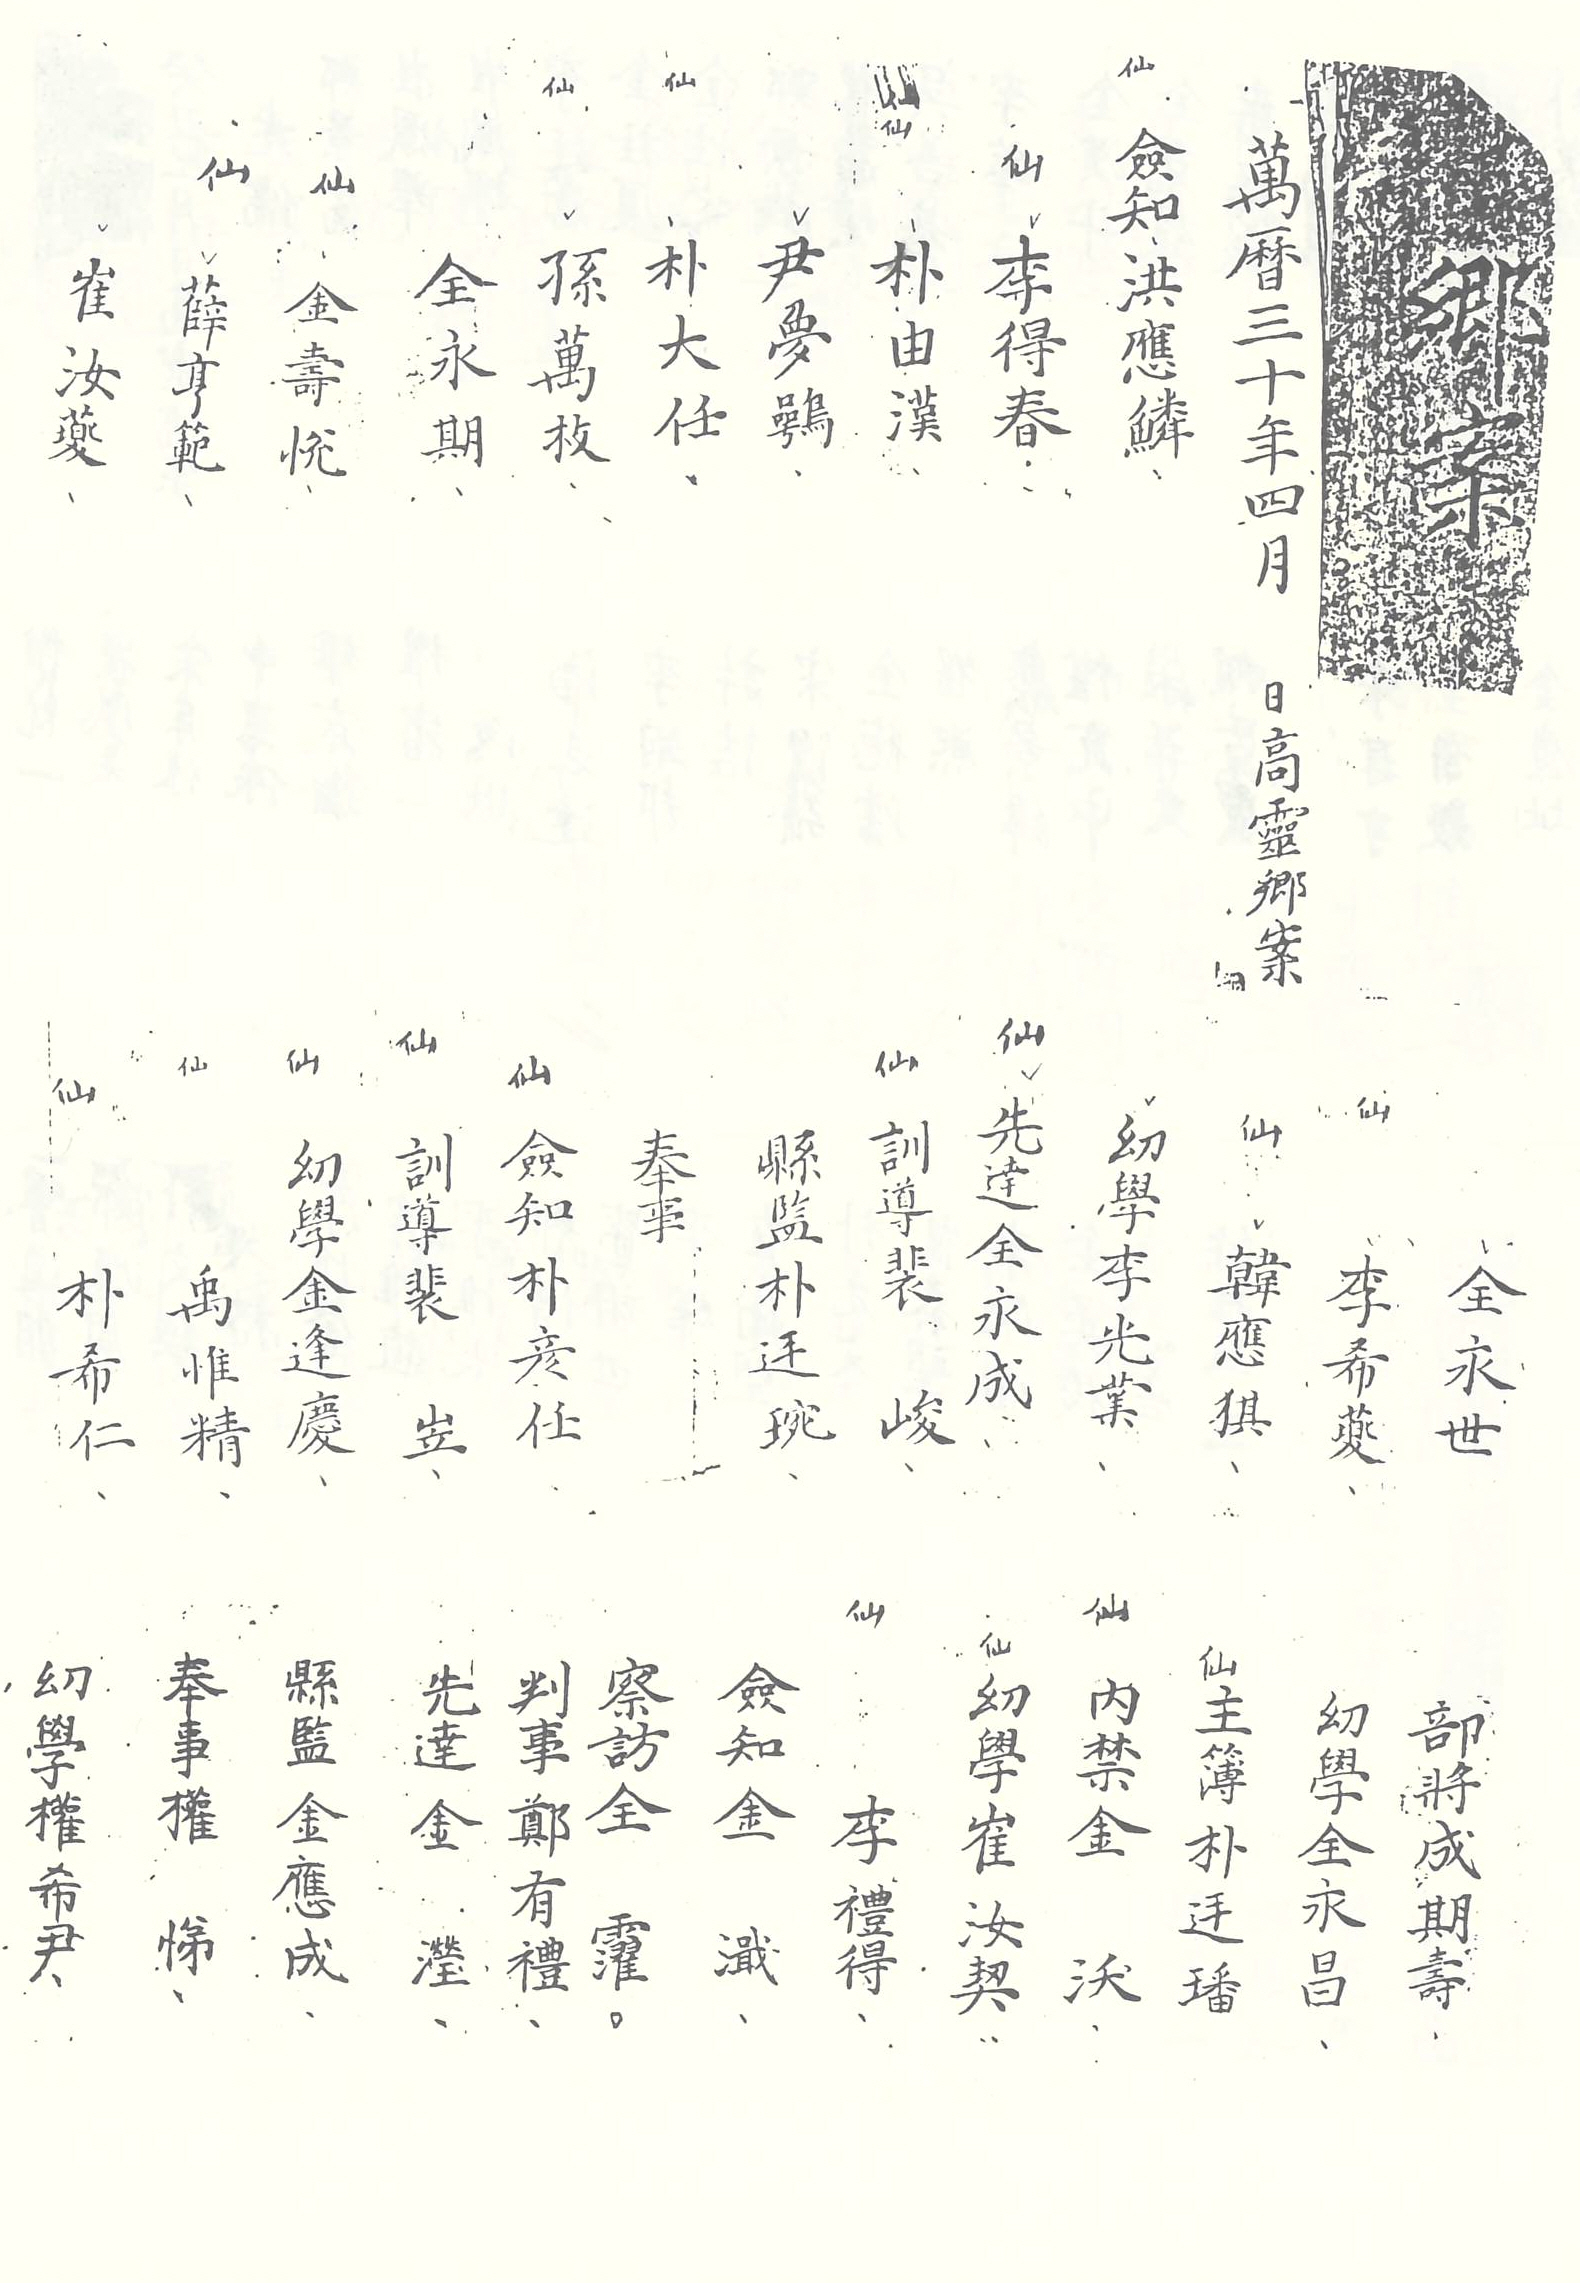 鄉案
萬曆三十年四月 日高靈鄉案
仙 僉知洪應鱗
仙 李得春
仙 朴由漢
尹夢鶚
仙 朴大任
仙 孫萬枚
全永期
仙 金壽悅
仙 薛亨範
崔汝夔
全永世
仙 李希夔
仙 韓應猉
幼學李光業
仙 先達全永成
仙 訓導裴 峻
縣監朴廷琬
奉事
仙 僉知朴彦任
仙 訓導裴 岦
仙 幼學金逢慶
仙 禹惟精
仙 朴希仁
部將成期壽
幼學全永昌
仙 主簿朴廷璠
仙 內禁金 沃
仙 幼學崔汝契
仙 李禮得
僉知金 瀐
察訪全 霍
判事鄭有禮
先達金 瀅
縣監金應成
奉事權 悌
幼學權希尹